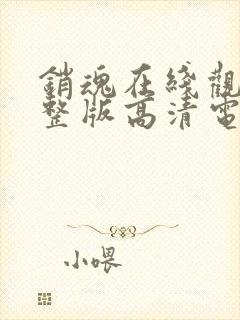 銷魂在綫觀
整版高清電
小喂